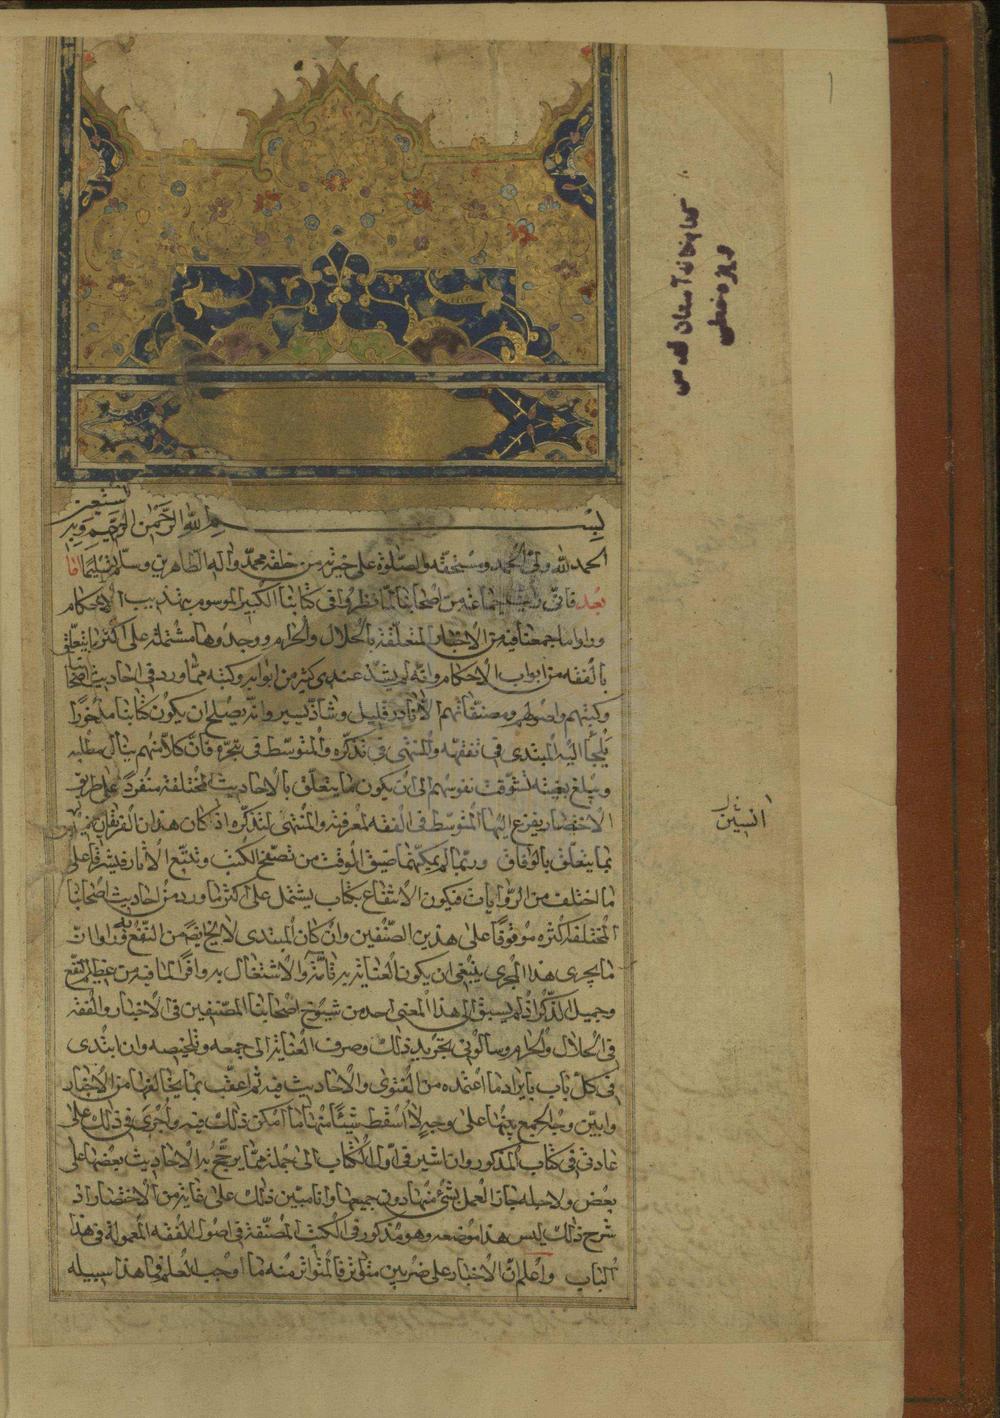 بسم الله الرحمن الرحيم وبه نستعين
الحمد لله ولى الحمد ومستحقه والصلوة على خيرته من خلقه محمد واله الطاهرين وسلم تسليما اما
بعد فانى رايت جماعة من اصحابنا لما نظروا فى كتابنا الكبير الموسوم بتهذيب الاحكام
وراوا ما جمعنا فيه من الاخبار المتعلقة بالحلال والحرام ووجدوها مشتملة على اكثر ما يتعلق
بالفقه من ابواب الاحكام وانه لم يشذ عنه فى كثير من ابوابه وكتبه مما ورد فى احاديث اصحابنا
وكتبهم واصولهم ومصنفاتهم الا نادر قليل وشاذ يسير وانه يصلح ان يكون كتابنا مذخورا
يلجأ اليه المبتدى فى تفقهه والمنتهى فى تذكره والمتوسط فى تبحره فان كلا منهم ينال مطلبه
ويبلغ بغيته تشوقت نفوسهم الى ان يكون ما يتعلق بالاحاديث المختلفة منفردا على طريق
الاختصار يفزع اليها المتوسط فى الفقه لمعرفته والمنتهى لتذكره اذ كان هذان الفريقان
بما يتعلق بالوفاق وربما لم يمكنهما ضيق الوقت من تصفح الكتب وتتبع الاثار فيشرفا على
ما اختلف من الروايات فيكون الانتفاع بكتاب يشتمل على اكثر ما ورد من احاديث اصحابنا
المختلفة اكثره موقوفا على هذين الصنفين وان كان المبتدى لا يخلو ايضا من النفع به وراوا ان
ما يجرى هذا المجرى ينبغى ان يكون العناية به تامة والاشتغال به وافرا لما فيه من عظيم النفع
وجميل الذكر اذ لم يسبق الى هذا المعنى احد من شيوخ اصحابنا المصنفين فى الاخبار والفقه
فى الحلال والحرام وسالونى تجريد ذلك وصرف العناية الى جمعه وتلخيصه وان ابتدى
فى كل باب بايراد ما اعتمده من الفتوى والاحاديث فيه ثم اعقب بما يخالفها من الاخبار
وابين وجه الجمع بينها على وجه لا اسقط شيئا منها ما امكن ذلك فيه واجرى فى ذلك على
عادتى فى كتاب المذكور وان اشير فى اول الكتاب الى جملة مما يرجح به الاحاديث بعضها على
بعض ولاجله جاز العمل بشئ منها دون جميعها وانا مبين ذلك على غاية من الاختصار اذ
شرح ذلك ليس هذا موضعه وهو مذكور فى الكتب المصنفة فى اصول الفقه المعمولة فى هذا
الباب واعلم ان الاخبار على ضربين متواتر فالمتواتر منه ما اوجب العلم فما هذا سبيله
كتابخانه آستان قدس
ويژه خطى
١